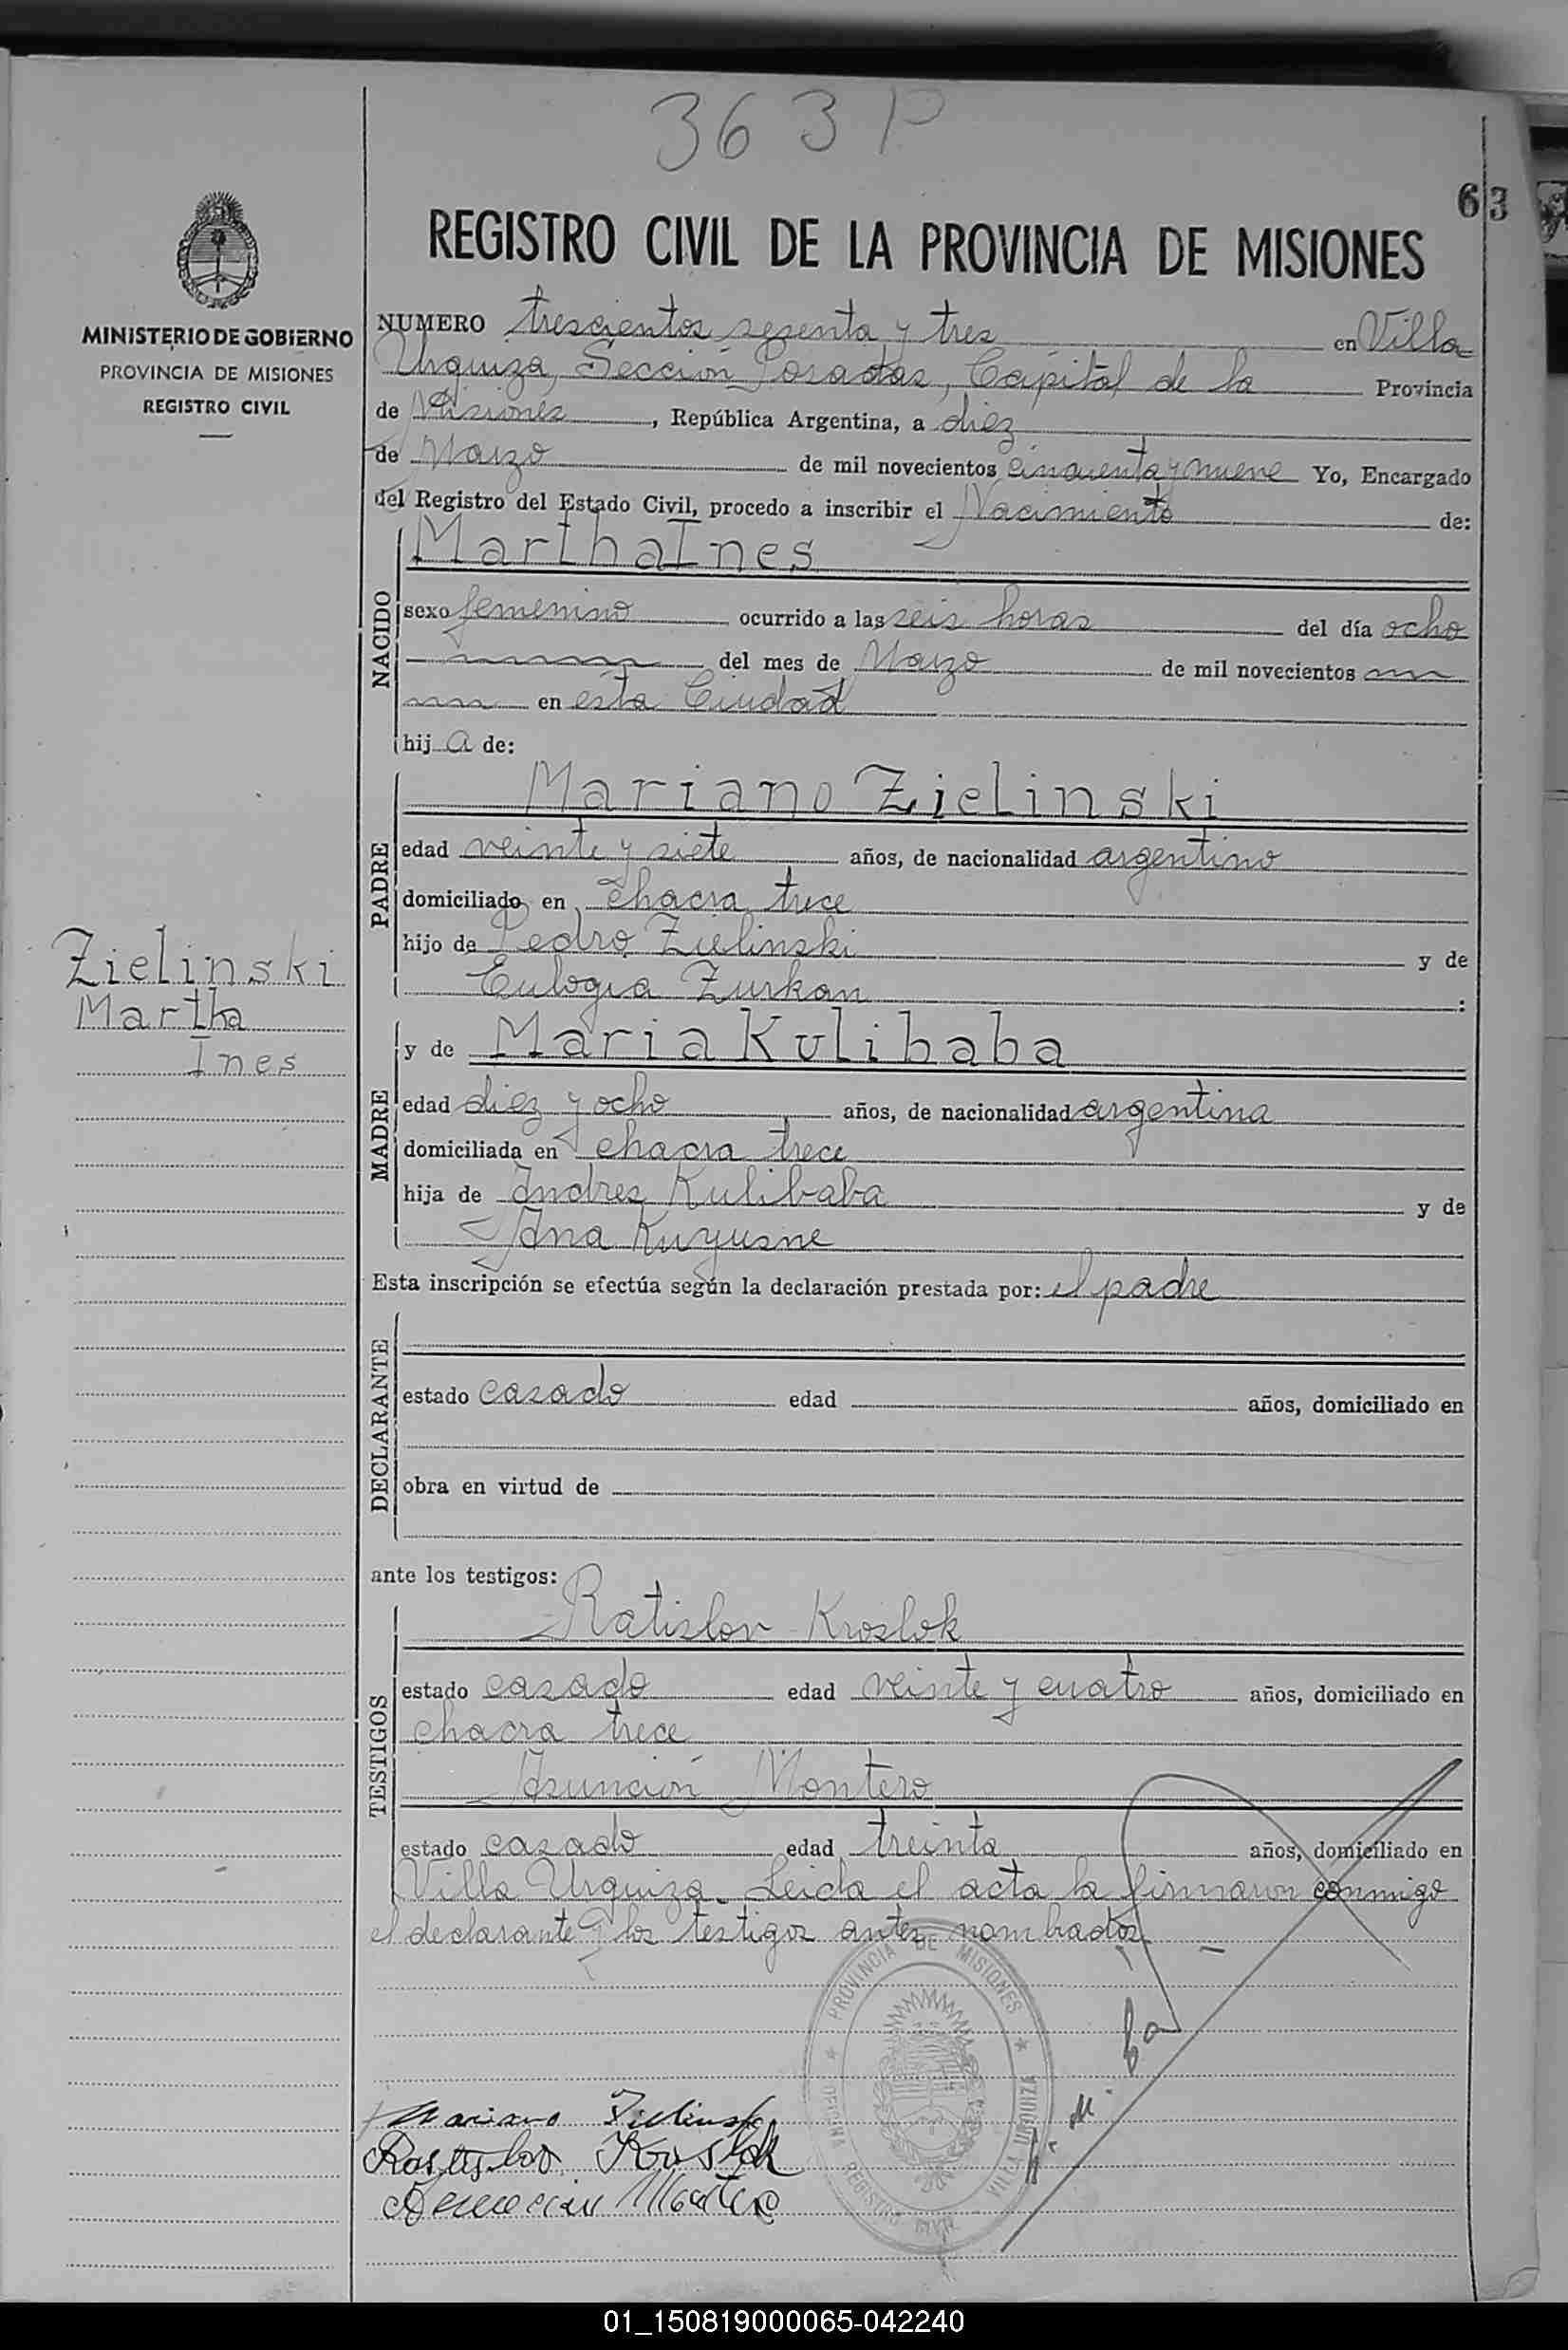 363 P
63
REGISTRO CIVIL DE LA PROVINCIA DE MISIONES
MINISTERIO DE GOBIERNO
PROVINCIA DE MISIONES
REGISTRO CIVIL
NUMERO trescientos sesenta y tres en Villa
Urquiza, Sección Posadas, Capital de la Provincia
de Misiones, República Argentina, a diez
de Marzo de mil novecientos cincuenta y nueve Yo, Encargado
del Registro del Estado Civil, procedo a inscribir el Nacimiento de:
NACIDO
Martha Ines
sexo femenino ocurrido a las seis horas del día ocho
del mes de Marzo de mil novecientos
en esta Ciudad
hija de:
PADRE
Mariano Zielinski
edad veinte y siete años, de nacionalidad argentino
domiciliado en chacra trece
hijo de Pedro Zielinski y de
Eulogia Zurkan :
Zielinski
Martha
Ines
MADRE
y de Maria Kulibaba
edad diez y ocho años, de nacionalidad argentina
domiciliada en chacra trece
hija de Andres Kulibaba y de
Ana
Esta inscripción se efectúa según la declaración prestada por: el padre
DECLARANTE
estado casado edad años, domiciliado en
obra en virtud de
ante los testigos:
TESTIGOS
Ratislov Kroslok
estado casado edad veinte y cuatro años, domiciliado en
chacra trece
Asunción Montero
estado casado edad treinta años, domiciliado en
Villa Urquiza. Leida el acta la firmaron conmigo
el declarante y los testigos antes nombrados.
PROVINCIA DE MISIONES
OFICINA REGISTRO CIVIL VILLA URQUIZA
Mariano Zielinski
Rastislov Kroslok
Asuncion Montero
01_150819000065-042240